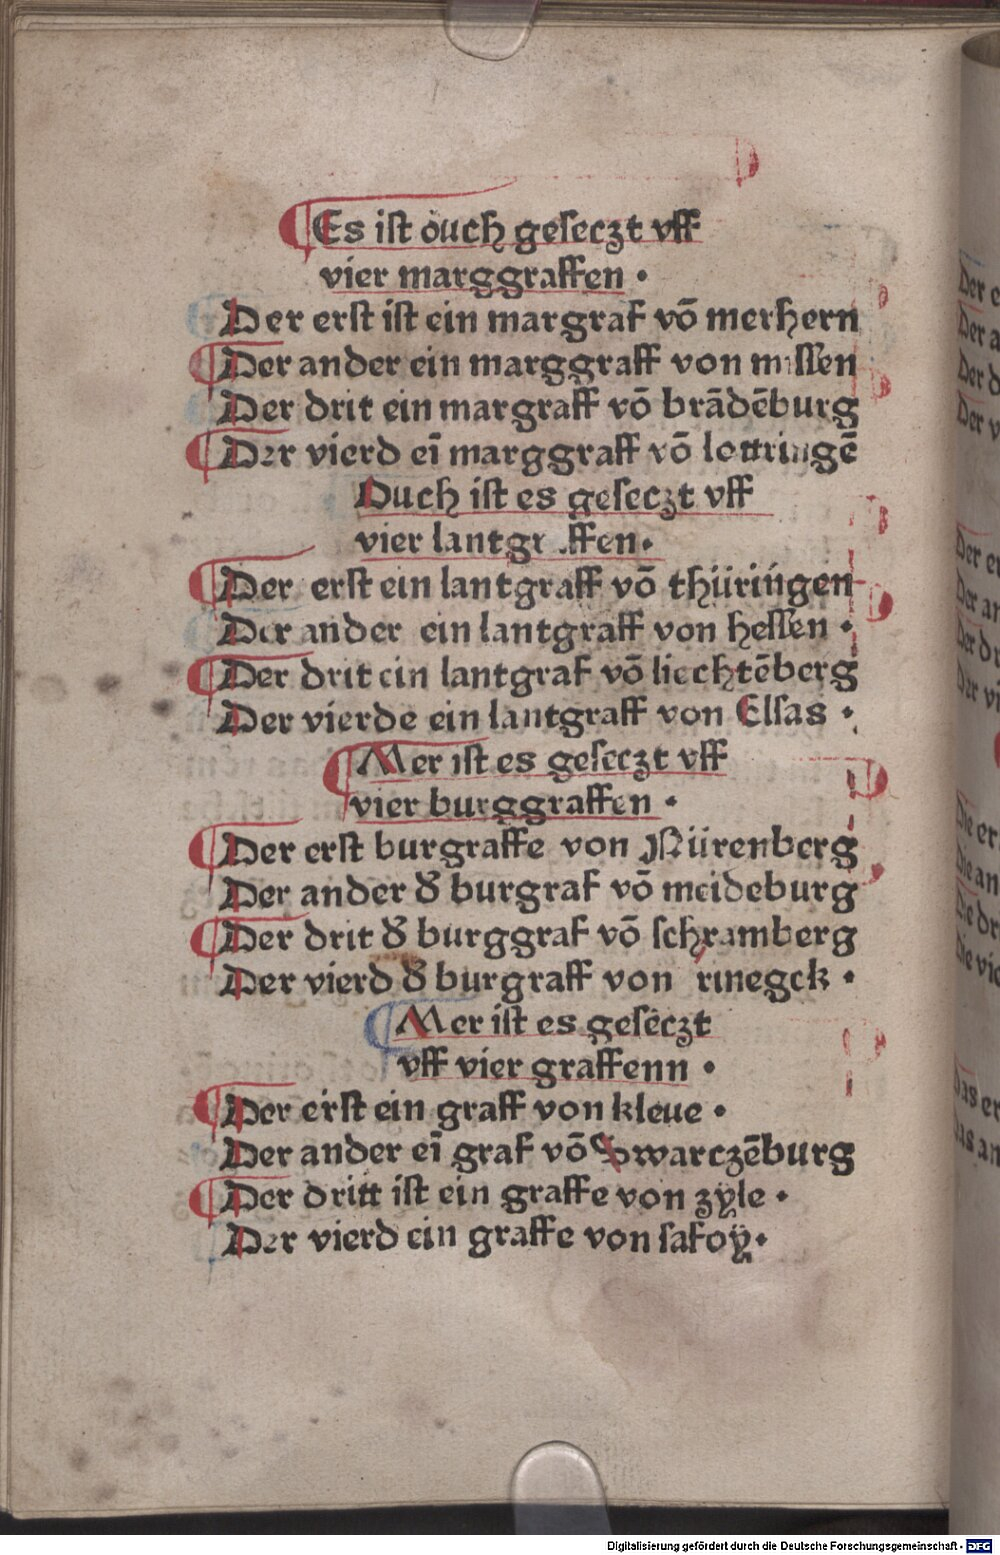 Es ist ouch geseczt vff
vier marggraffen .
Der erst ist ein margraf võ merhern
Der ander ein marggraff von missen
Der drit ein margraff võ brãdẽburg
Der vierd eĩ marggraff võ lottringẽ
Ouch ist es geseczt vff
vier lantgraffen.
Der erst ein lantgraff võ thüringen
Der ander ein lantgraff von hessen .
Der drit ein lantgraf võ liechtẽberg
Der vierde ein lantgraff von Elsas .
Mer ist es geseczt vff
vier burggraffen .
Der erst burgraffe von Nürenberg
Der ander d' burgraf võ meideburg
Der drit d' burggraf võ schramberg
Der vierd d' burgraff von rinegck .
Mer ist es geseczt
vff vier graffenn .
Der erst ein graff von kleue .
Der ander eĩ graf võ Swarczẽburg
Der dritt ist ein graffe von zyle .
Der vierd ein graffe von safoÿ.
Digitalisierung gefördert durch die Deutsche Forschungsgemeinschaft - DFG